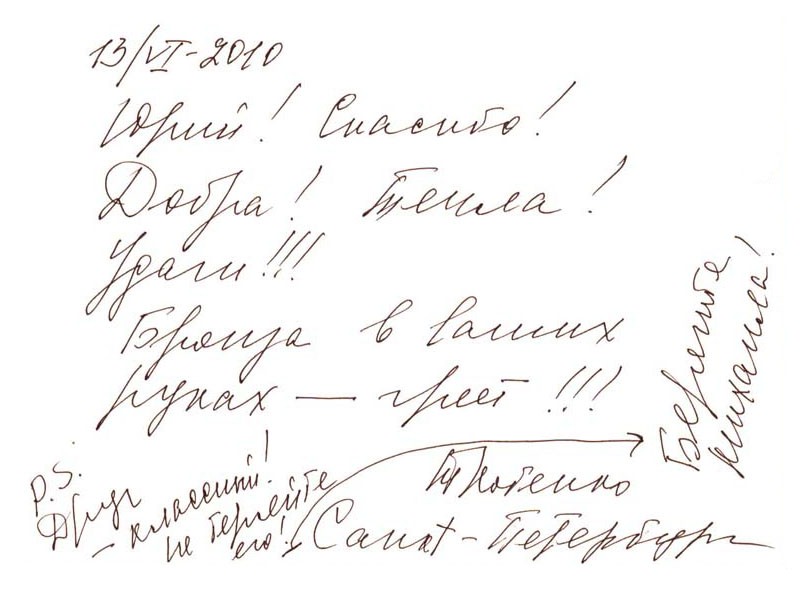 13/VI-2010
Юрий! Спасибо!
Добра! Тепла!
Удачи!!!
Бронза в ваших
руках — греет!!!
Санкт-Петербург
P.S.
Друг
– классный!
не теряйте
его!
Берегите
Михаила!